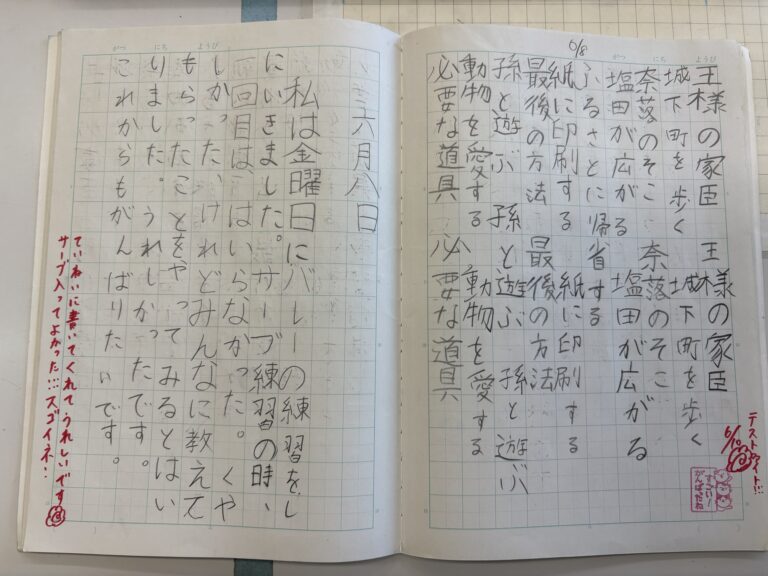 6/8
王様の家臣 王様の家臣
城下町を歩く 城下町を歩く
奈落のそこ 奈落のそこ
塩田が広がる 塩田が広がる
ふるさとに帰省する
紙に印刷する 紙に印刷する
最後の方法 最後の方法
孫と遊ぶ 孫と遊ぶ 孫と遊ぶ
動物を愛する 動物を愛する
必要な道具 必要な道具
がつ にち ようび
テストファイト!!
6/10
すごい!
がんばったね
がつ にち ようび
六月八日
私は金曜日にバレーの練習をし
にいきました。サーブ練習の時、
一回目は、はいらなかった。くや
しかった、けれどみんなに教えて
もらったことをやってみるとはい
りました。うれしかったです。
これからもがんばりたいです。
ていねいに書いてくれてうれしいです
サーブ入ってよかった!!!スゴイネ!!